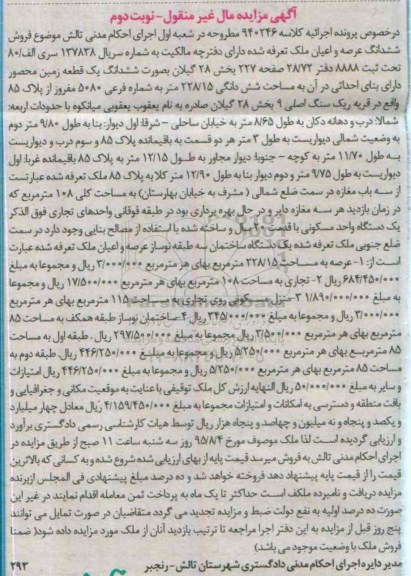 آگهی مزایده مال غیر منقول - نوبت دوم
درخصوص پرونده اجرائیه کلاسه ۹۴۰۲۴۶ مطروحه در شعبه اول اجرای احکام مدنی تالش موضوع فروش
ششدانگ عرصه و اعیان ملک تعرفه شده دارای دفترچه مالکیت به شماره سریال ۱۳۷۸۳۸ سری الف/۸۰
تحت ثبت ۸۸۸۸ دفتر ۲۸/۷۲ صفحه ۲۲۷ بخش ۲۸ گیلان بصورت ششدانگ یک قطعه زمین محصور
دارای بنای احداثی در آن به مساحت شش دانگی ۲۲۸/۱۵ متر به شماره فرعی ۵۰۸۰ مفروز از پلاک ۸۵
واقع در قریه ریک سنگ اصلی ۹ بخش ۲۸ گیلان صادره به نام یعقوب یعقوبی میانکوه با حدودات اربعه:
شمالا: درب و دهانه دکان به طول ۸/۶۵ متر به خیابان ساحلی - شرقا: اول دیوار: بنا به طول ۹/۸۰ متر دوم
به وضعیت شمالی دیواریست به طول ۳ متر هر دو قسمت به باقیمانده پلاک ۸۵ و سوم درب و دیواریست
به طول ۱۱/۷۰ متر به کوچه - جنوبا: دیوار مجاور به طول ۱۲/۱۵ متر به پلاک ۸۵ باقیمانده غربا: اول
دیواریست به طول ۹/۷۵ متر و دوم دیوار بنا به طول ۱۲/۹۰ متر کلا به پلاک ۸۵ ملک تعرفه شده عبارتست
از سه باب مغازه در سمت ضلع شمالی ( مشرف به خیابان بهارستان) به مساحت کلی ۱۰۸ مترمربع که
در زمان بازدید هر سه مغازه دایر و در حال بهره برداری بود در طبقه فوقانی واحدهای تجاری فوق الذکر
یک دستگاه واحد مسکونی با قدمت ۳۰ سال و ساخته شده با استفاده از مصالح بنایی وجود دارد در سمت
ضلع جنوبی ملک تعرفه شده یک دستگاه ساختمان سه طبقه نوساز عرصه و اعیان ملک تعرفه شده عبارت
است از: ۱- عرصه به مساحت ۲۲۸/۱۵ مترمربع بهای هر مترمربع ۳/۰۰۰/۰۰۰ ریال و مجموعا به مبلغ
۶۸۴/۴۵۰/۰۰۰ ریال ۲- تجاری به مساحت ۱۰۸ مترمربع بهای هر مترمربع ۱۷/۵۰۰/۰۰۰ ریال و مجموعا
به مبلغ ۱/۸۹۰/۰۰۰/۰۰۰ ۳- منزل مسکونی روی تجاری به مساحت ۱۱۵ مترمربع بهای هر مترمربع
۳/۰۰۰/۰۰۰ ریال و مجموعا به مبلغ ۳۴۵/۰۰۰/۰۰۰ ریال ۴- ساختمان نوساز طبقه همکف به مساحت ۸۵
مترمربع بهای هر مترمربع ۳/۵۰۰/۰۰۰ ریال مجموعا به مبلغ ۲۹۷/۵۰۰/۰۰۰ ریال. طبقه اول به مساحت
۸۵ مترمربع بهای هر مترمربع ۵/۲۵۰/۰۰۰ ریال و مجموعا به مبلغ ۴۴۶/۲۵۰/۰۰۰ ریال. طبقه دوم به
مساحت ۸۵ مترمربع بهای هر مترمربع ۵/۲۵۰/۰۰۰ ریال و مجموعا به مبلغ ۴۴۶/۲۵۰/۰۰۰ ریال امتیازات
و سایر به مبلغ ۵۰/۰۰۰/۰۰۰ ریال النهایه ارزش کل ملک توقیفی با عنایت به موقعیت مکانی و جغرافیایی و
بافت منطقه و دسترسی به امکانات و امتیازات مجموعا به مبلغ ۴/۱۵۹/۴۵۰/۰۰۰ ریال معادل چهار میلیارد
و یکصد و پنجاه و نه میلیون و چهاصد و پنجاه هزار ریال توسط هیات کارشناسی رسمی دادگستری برآورد
و ارزیابی گردیده است لذا ملک موصوف مورخ ۹۵/۸/۴ روز سه شنبه ساعت ۱۱ صبح از طریق مزایده در
اجرای احکام مدنی تالش به فروش میرسد قیمت پایه از بهای ارزیابی شده شروع شده و به کسانی که بالاترین
قیمت را از قیمت پایه پیشنهاد دهد فروخته خواهد شد و ده درصد مبلغ پیشنهادی فی المجلس ازبرنده
مزایده دریافت و نامبرده مکلف است حداکثر تا یک ماه به پرداخت ثمن معامله اقدام نمایند در غیر این
صورت ده درصد اولیه به نفع دولت ضبط و مزایده تجدید می گردد متقاضیان در صورت تمایل می توانند
پنج روز قبل از مزایده به این دفتر اجرا مراجعه تا ترتیب بازدید آنان از ملک مورد مزایده داده شود( ضمنا
فروش ملک با وضعیت موجود می باشد)
مدیر دایره اجرای احکام مدنی دادگستری شهرستان تالش - رنجبر
۲۹۲